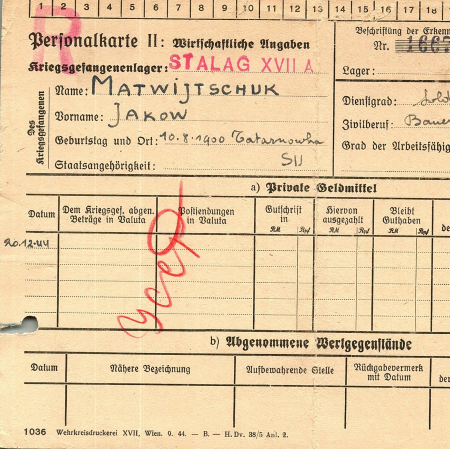 1 2 3 4 5 6 7 8 9 10 11 12 13 14 15 16 17 18
Personalkarte II: Wirtschaftliche Angaben
Kriegsgefangenenlager: STALAG XVII A
Des Kriegsgefangenen
Name: MATWIJTSCHUK
Vorname: JAKOW
Geburtstag und Ort: 10.8.1900 Tatarnowka
Staatsangehörigkeit: SU
Beschriftung der Erkenn
Nr. 1667
Lager:
Dienstgrad: Sold
Zivilberuf: Bauer
Grad der Arbeitsfähig
a) Private Geldmittel
Datum Dem Kriegsgef. abgen. Beträge in Valuta Postsendungen in Valuta Gutschrift in Hiervon ausgezahlt Bleibt Guthaben de
RM Rpf RM Rpf RM Rpf
20.12.44
b) Abgenommene Wertgegenstände
Datum Nähere Bezeichnung Aufbewahrende Stelle Rückgabevermerk mit Datum der
1036 Wehrkreisdruckerei XVII, Wien. 9. 44. — B. — H. Dv. 38/5 Anl. 2.